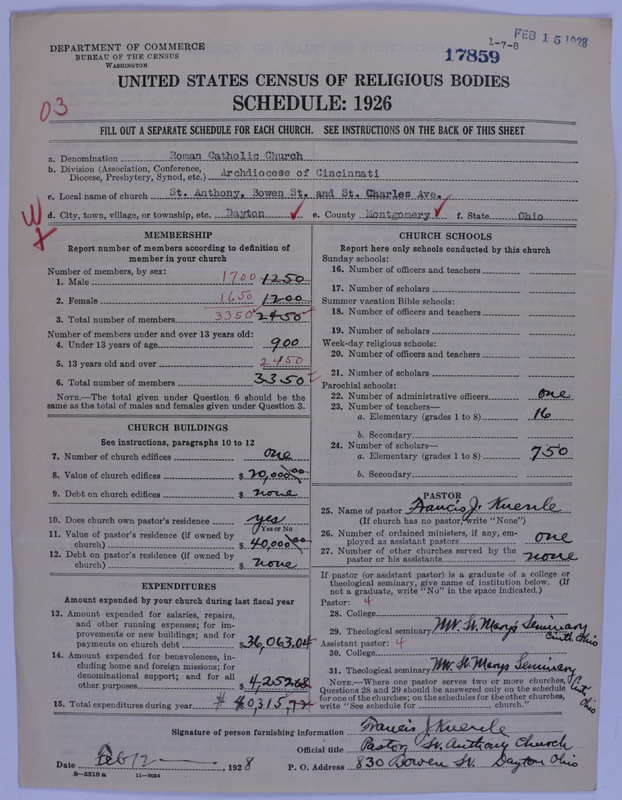 DEPARTMENT OF COMMERCE
BUREAU OF THE CENSUS
WASHINGTON
1-7-8
FEB 15 1928
17859
UNITED STATES CENSUS OF RELIGIOUS BODIES
SCHEDULE: 1926
03
FILL OUT A SEPARATE SCHEDULE FOR EACH CHURCH. SEE INSTRUCTIONS ON THE BACK OF THIS SHEET
a. Denomination Roman Catholic Church
b. Division (Association, Conference, Diocese, Presbytery, Synod, etc.) Archdiocese of Cincinnati
c. Local name of church St. Anthony, Bowen St. and St. Charles Ave.
d. City, town, village, or township, etc. Dayton e. County Montgomery f. State Ohio
MEMBERSHIP
Report number of members according to definition of
member in your church
Number of members, by sex:
1. Male 1700 1250
2. Female 1650 1200
3. Total number of members 3350 2450
Number of members under and over 13 years old:
4. Under 13 years of age 900
5. 13 years old and over 2450
6. Total number of members 3350
NOTE.—The total given under Question 6 should be the
same as the total of males and females given under Question 3.
CHURCH BUILDINGS
See instructions, paragraphs 10 to 12
7. Number of church edifices one
8. Value of church edifices $ 20,000.00
9. Debt on church edifices $ none
10. Does church own pastor's residence yes
Yes or No
11. Value of pastor's residence (if owned by
church) $ 40,000.00
12. Debt on pastor's residence (if owned by
church) $ none
EXPENDITURES
Amount expended by your church during last fiscal year
13. Amount expended for salaries, repairs,
and other running expenses; for im-
provements or new buildings; and for
payments on church debt $ 36,063.04
14. Amount expended for benevolences, in-
cluding home and foreign missions; for
denominational support; and for all
other purposes $ 4,252.68
15. Total expenditures during year $ 40,315.72
CHURCH SCHOOLS
Report here only schools conducted by this church
Sunday schools:
16. Number of officers and teachers
17. Number of scholars
Summer vacation Bible schools:
18. Number of officers and teachers
19. Number of scholars
Week-day religious schools:
20. Number of officers and teachers
21. Number of scholars
Parochial schools:
22. Number of administrative officers one
23. Number of teachers—
a. Elementary (grades 1 to 8) 16
b. Secondary
24. Number of scholars—
a. Elementary (grades 1 to 8) 750
b. Secondary
PASTOR
25. Name of pastor Francis J.
(If church has no pastor, write "None")
26. Number of ordained ministers, if any, em-
ployed as assistant pastors one
27. Number of other churches served by the
pastor or his assistants none
If pastor (or assistant pastor) is a graduate of a college or
theological seminary, give name of institution below. (If
not a graduate, write "No" in the space indicated.)
Pastor: 4
28. College
29. Theological seminary Mt. St. Marys Seminary Cinti Ohio
Assistant pastor: 4
30. College
31. Theological seminary Mt. St. Marys Seminary Cinti Ohio
NOTE.—Where one pastor serves two or more churches,
Questions 28 and 29 should be answered only on the schedule
for one of the churches; on the schedules for the other churches,
write "See schedule for church."
Signature of person furnishing information Francis J.
Official title Pastor St. Anthony Church
Date Feb 12 1928 P. O. Address 830 Bowen St. Dayton Ohio
8—5518 a 11—9064